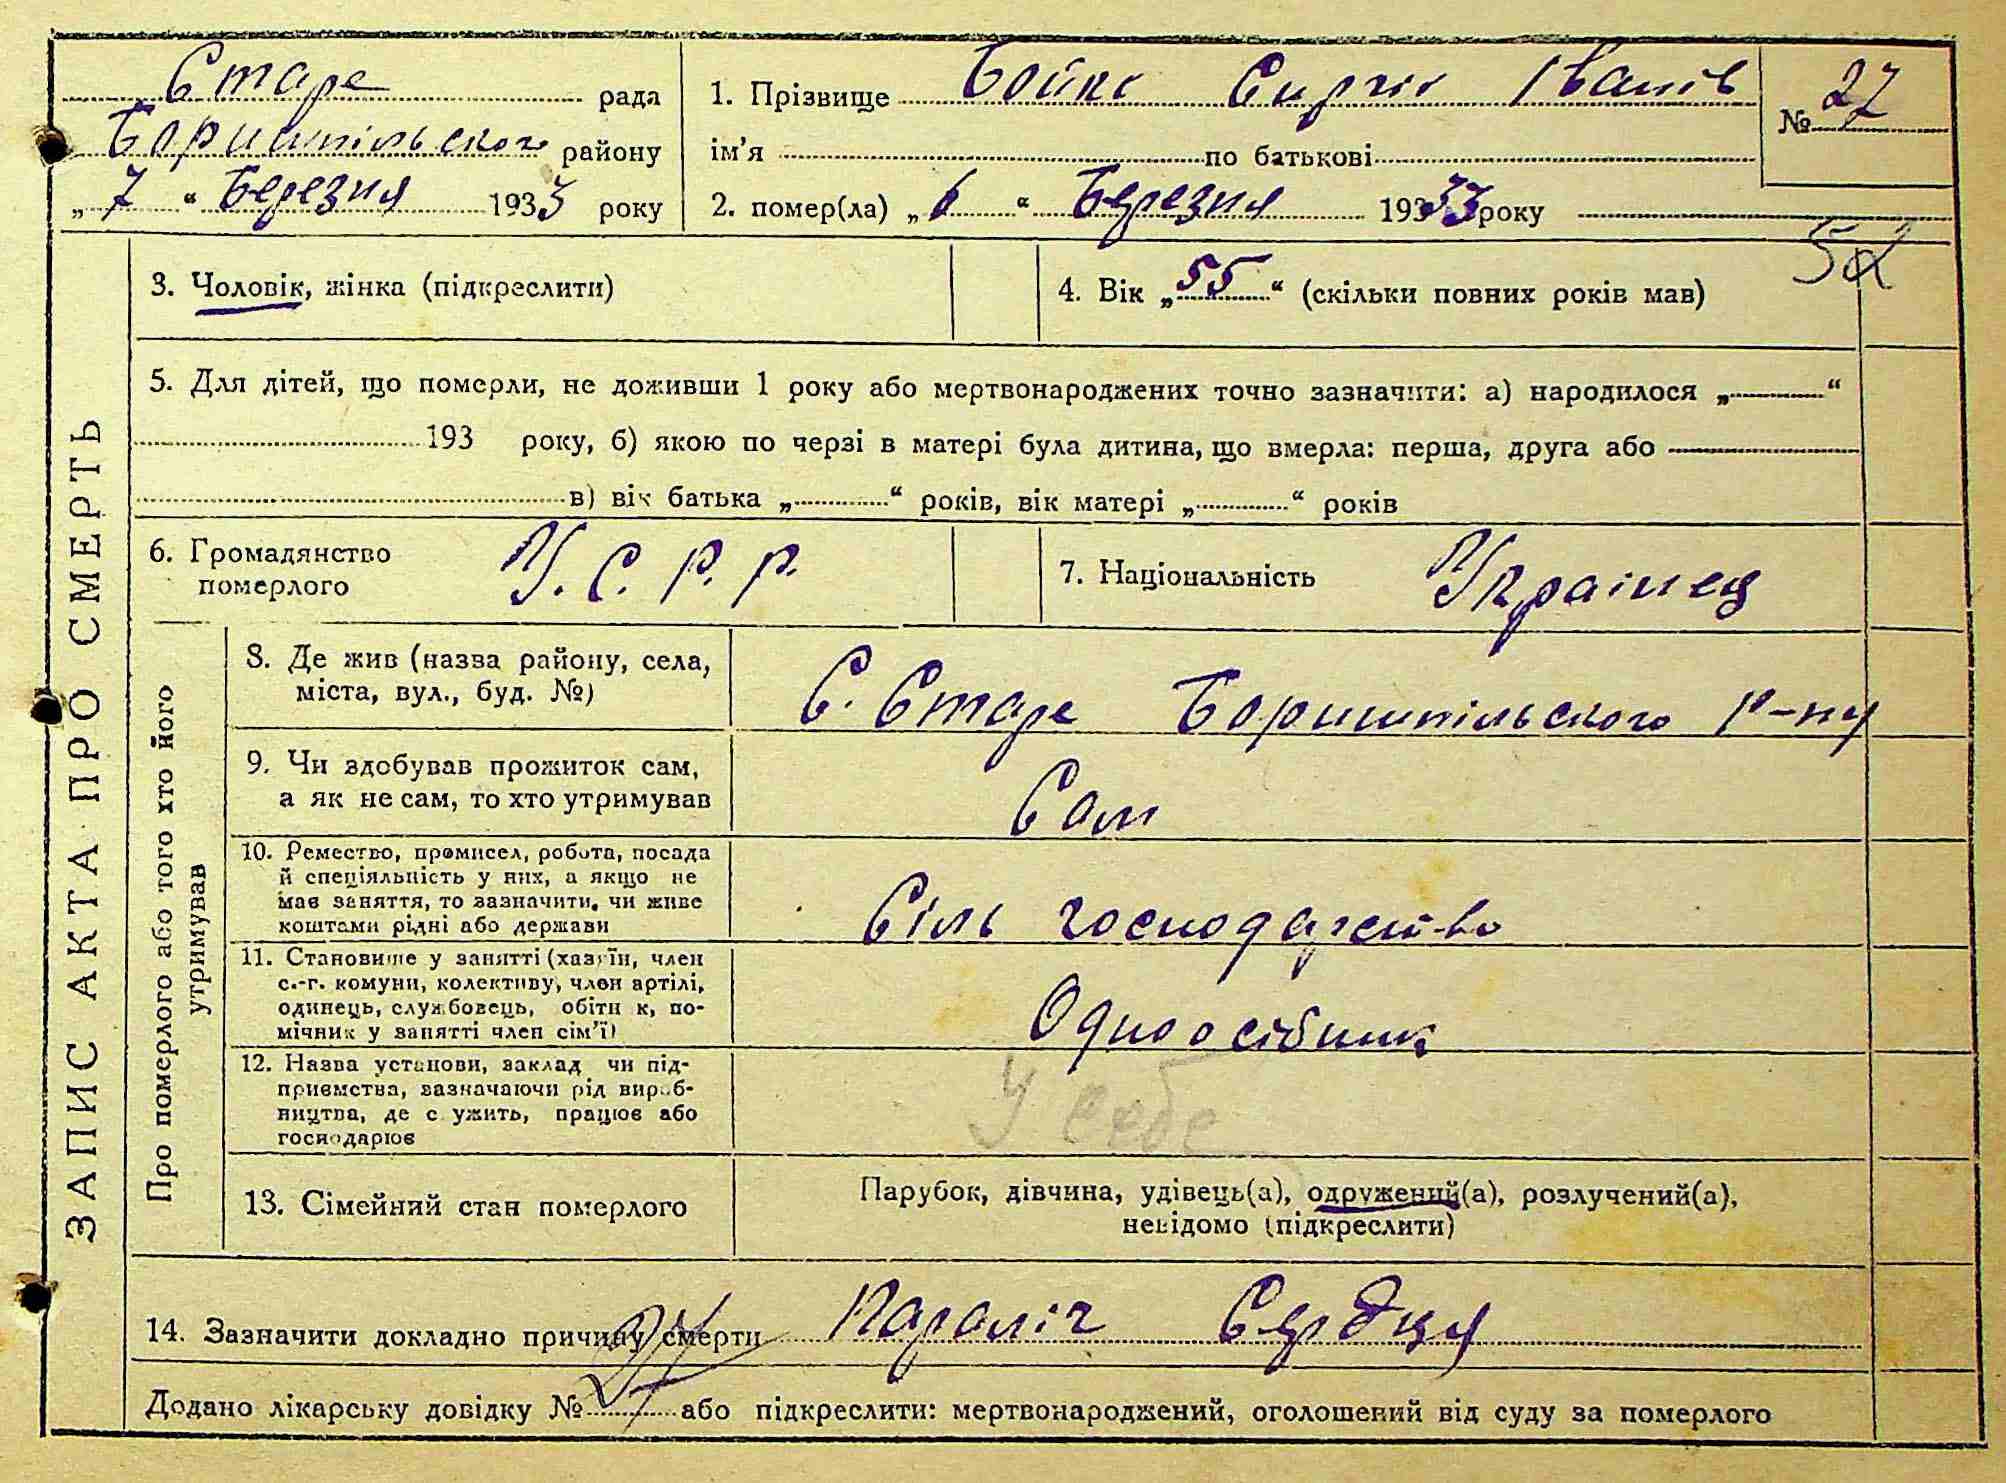 Старе рада
Бориспільского району
„ 7 “ Березня 1933 року
1. Прізвище Бойко Сиргій Іванів
ім'я по батькові
№ 27
2. помер(ла) „ 6 “ Березня 1933 року
ЗАПИС АКТА ПРО СМЕРТЬ
3. Чоловік, жінка (підкреслити)
4. Вік „ 55 “ (скільки повних років мав)
5. Для дітей, що померли, не доживши 1 року або мертвонароджених точно зазначити: а) народилося „ “
193 року, б) якою по черзі в матері була дитина, що вмерла: перша, друга або
в) вік батька „ “ років, вік матері „ “ років
6. Громадянство
померлого
У. С. Р. Р.
7. Національність Українец
Про померлого або того хто його
утримував
8. Де жив (назва району, села,
міста, вул., буд. №)
С. Старе Бориспільского р-ну
9. Чи здобував прожиток сам,
а як не сам, то хто утримував
Сам
10. Ремество, промисел, робота, посада
й спеціяльність у них, а якщо не
має заняття, то зазначити, чи живе
коштами рідні або держави
Сіль господарство
11. Становище у занятті (хазяїн, член
с.-г. комуни, колективу, член артілі,
одинець, службовець, обітник, по-
мічник у занятті член сім'ї)
Одноосібник
12. Назва установи, заклад чи під-
приємства, зазначаючи рід вироб-
ництва, де служить, працює або
господарює
У себе
13. Сімейний стан померлого
Парубок, дівчина, удівець(а), одружений(а), розлучений(а),
невідомо (підкреслити)
14. Зазначити докладно причину смерти Параліч Сердця
Додано лікарську довідку № або підкреслити: мертвонароджений, оголошений від суду за померлого